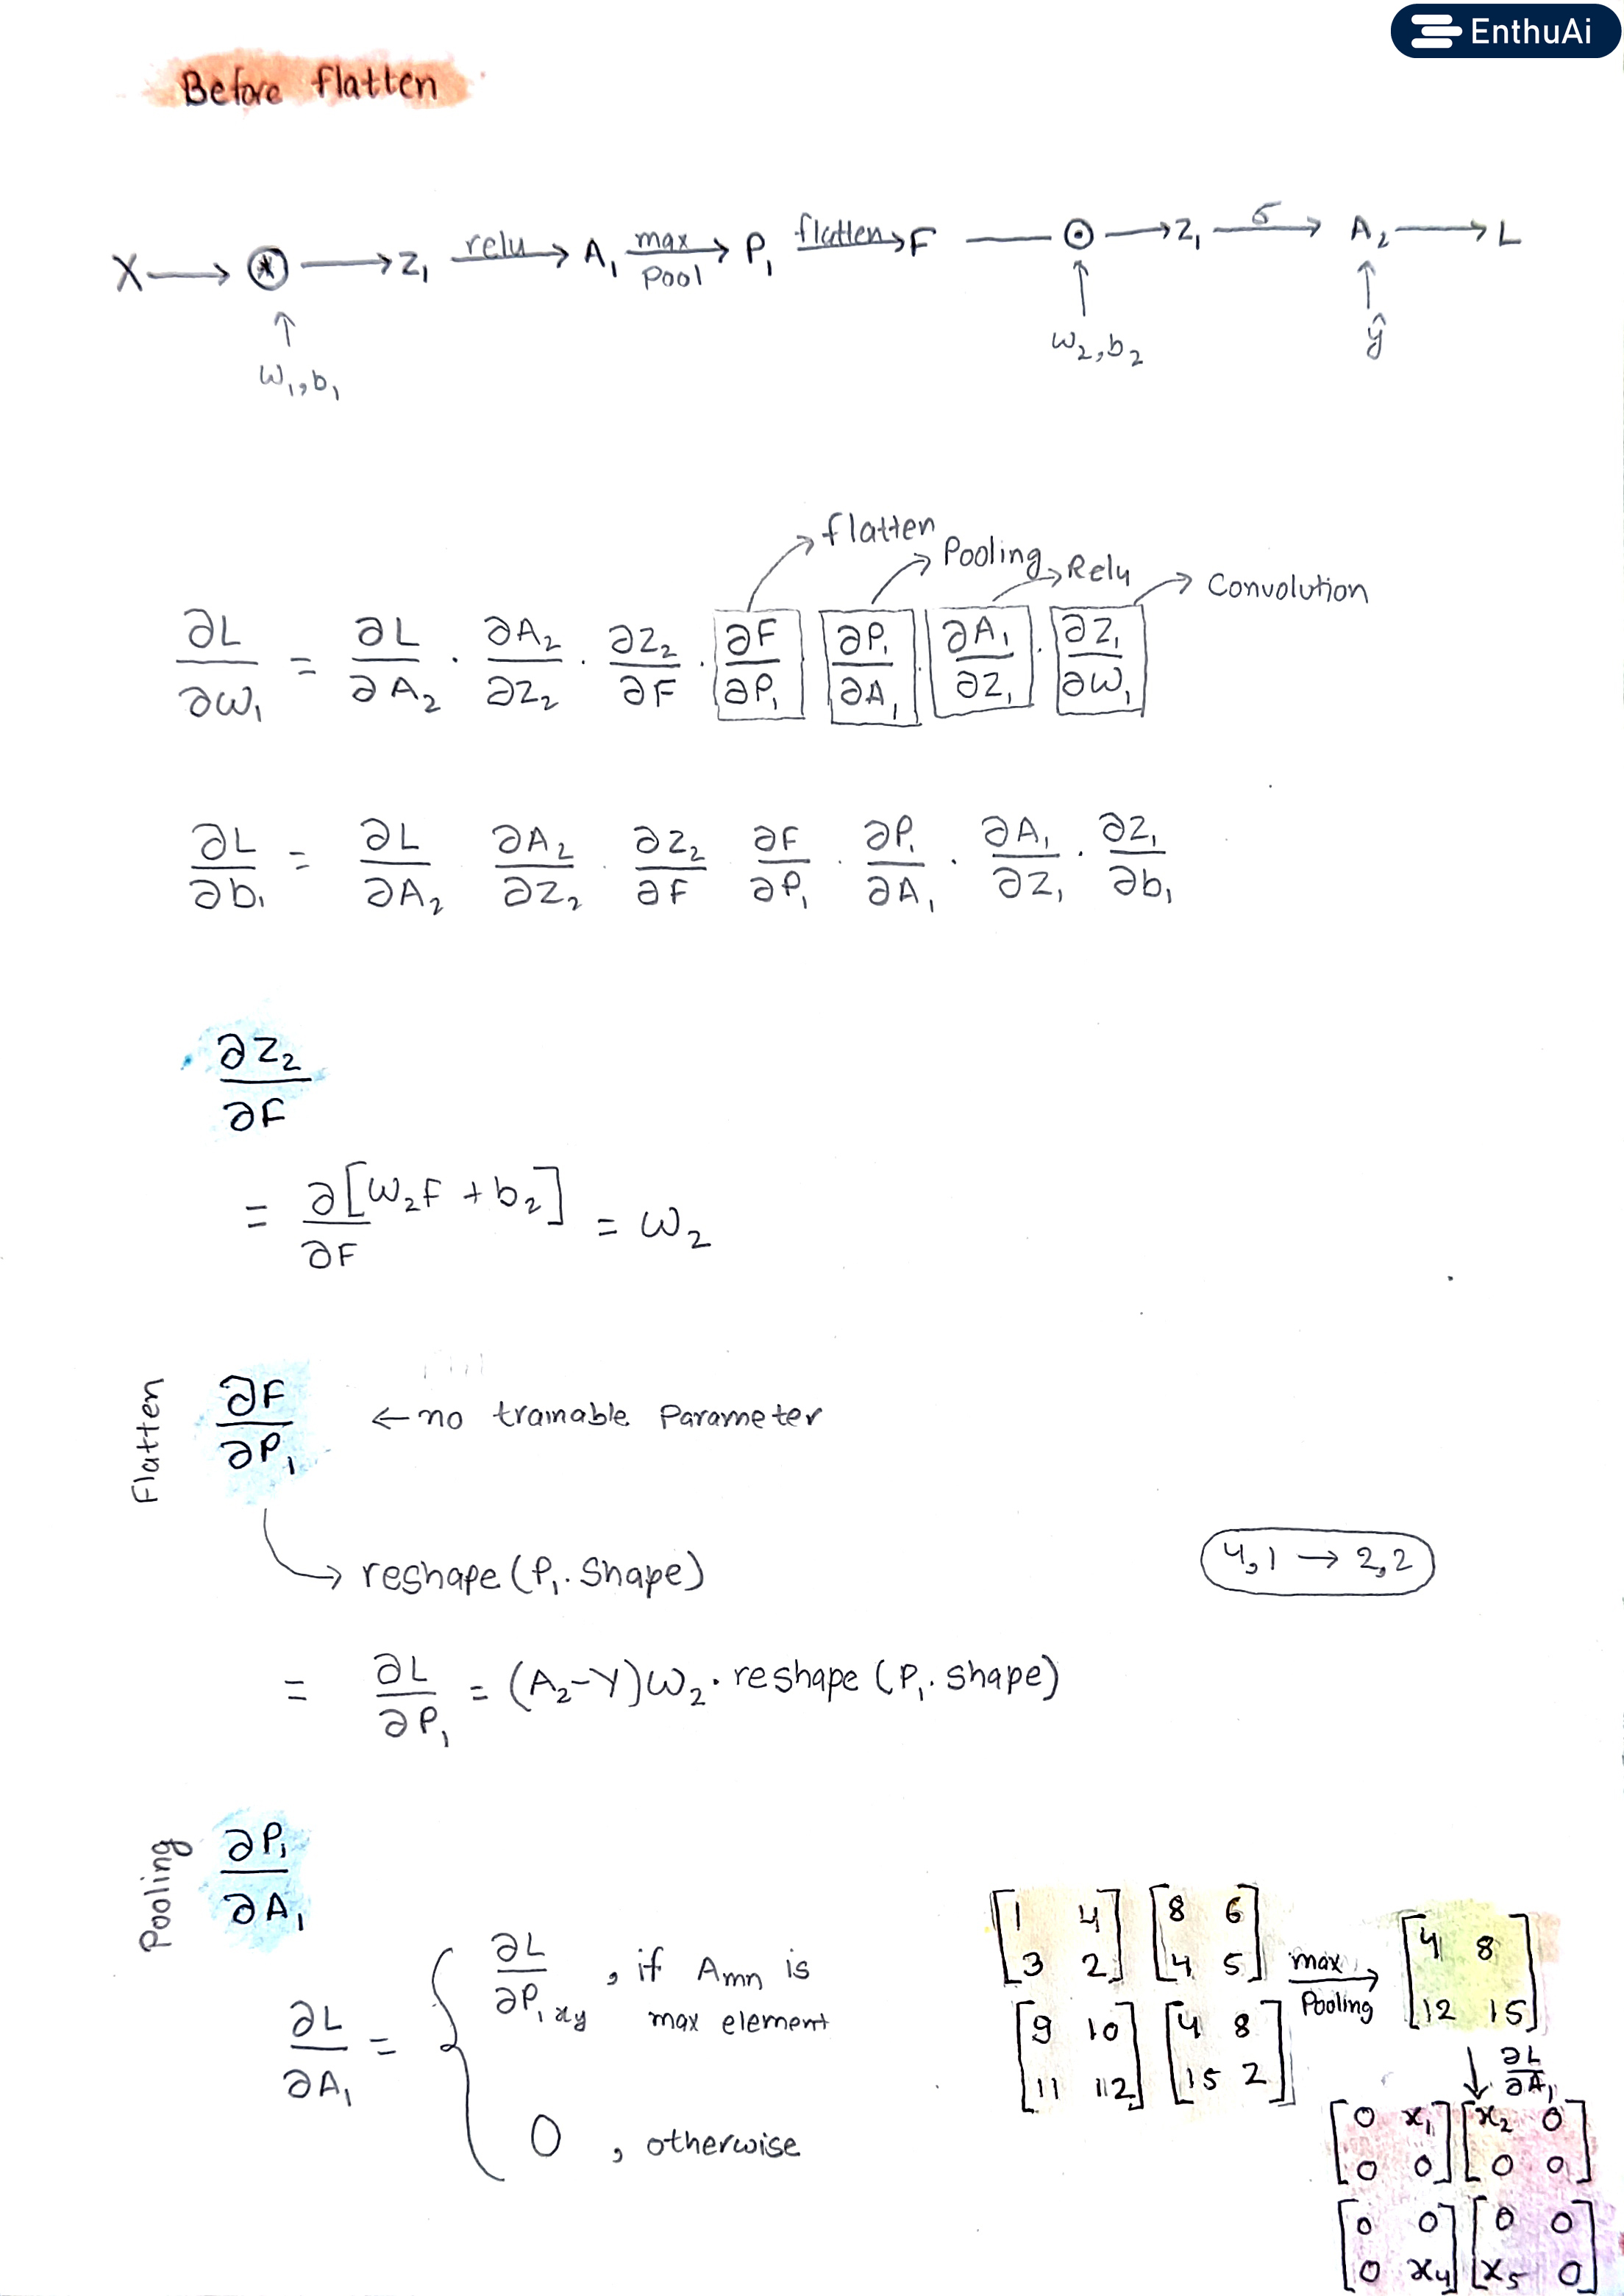 EnthuAi
Before flatten
X → ⊛ → Z₁ relu→ A₁ max Pool→ P₁ flatten→ F — ⊙ → Z₁ σ→ A₂ → L
↑ ↑ ↑
W₁, b₁ W₂, b₂ ŷ
flatten
Pooling
Relu
Convolution
∂L/∂W₁ = ∂L/∂A₂ · ∂A₂/∂Z₂ · ∂Z₂/∂F · ∂F/∂P₁ ∂P₁/∂A₁ · ∂A₁/∂Z₁ · ∂Z₁/∂W₁
∂L/∂b₁ = ∂L/∂A₂ ∂A₂/∂Z₂ · ∂Z₂/∂F ∂F/∂P₁ · ∂P₁/∂A₁ · ∂A₁/∂Z₁ · ∂Z₁/∂b₁
∂Z₂/∂F
= ∂[W₂F + b₂]/∂F = W₂
Flatten
∂F/∂P₁ ← no trainable Parameter
→ reshape (P₁. Shape)
4,1 → 2,2
= ∂L/∂P₁ = (A₂-Y)W₂. reshape (P₁. shape)
Pooling
∂P₁/∂A₁
∂L/∂A₁ = { ∂L/∂P₁xy , if Amn is
max element
0 , otherwise
[1 4] [8 6]
[3 2] [4 5]
[9 10] [4 8]
[11 12] [15 2]
max
Pooling
[4 8]
[12 15]
↓ ∂L/∂A₁
[0 x₁] [x₂ 0]
[0 0] [0 0]
[0 0] [0 0]
[0 x₄] [x₅ 0]